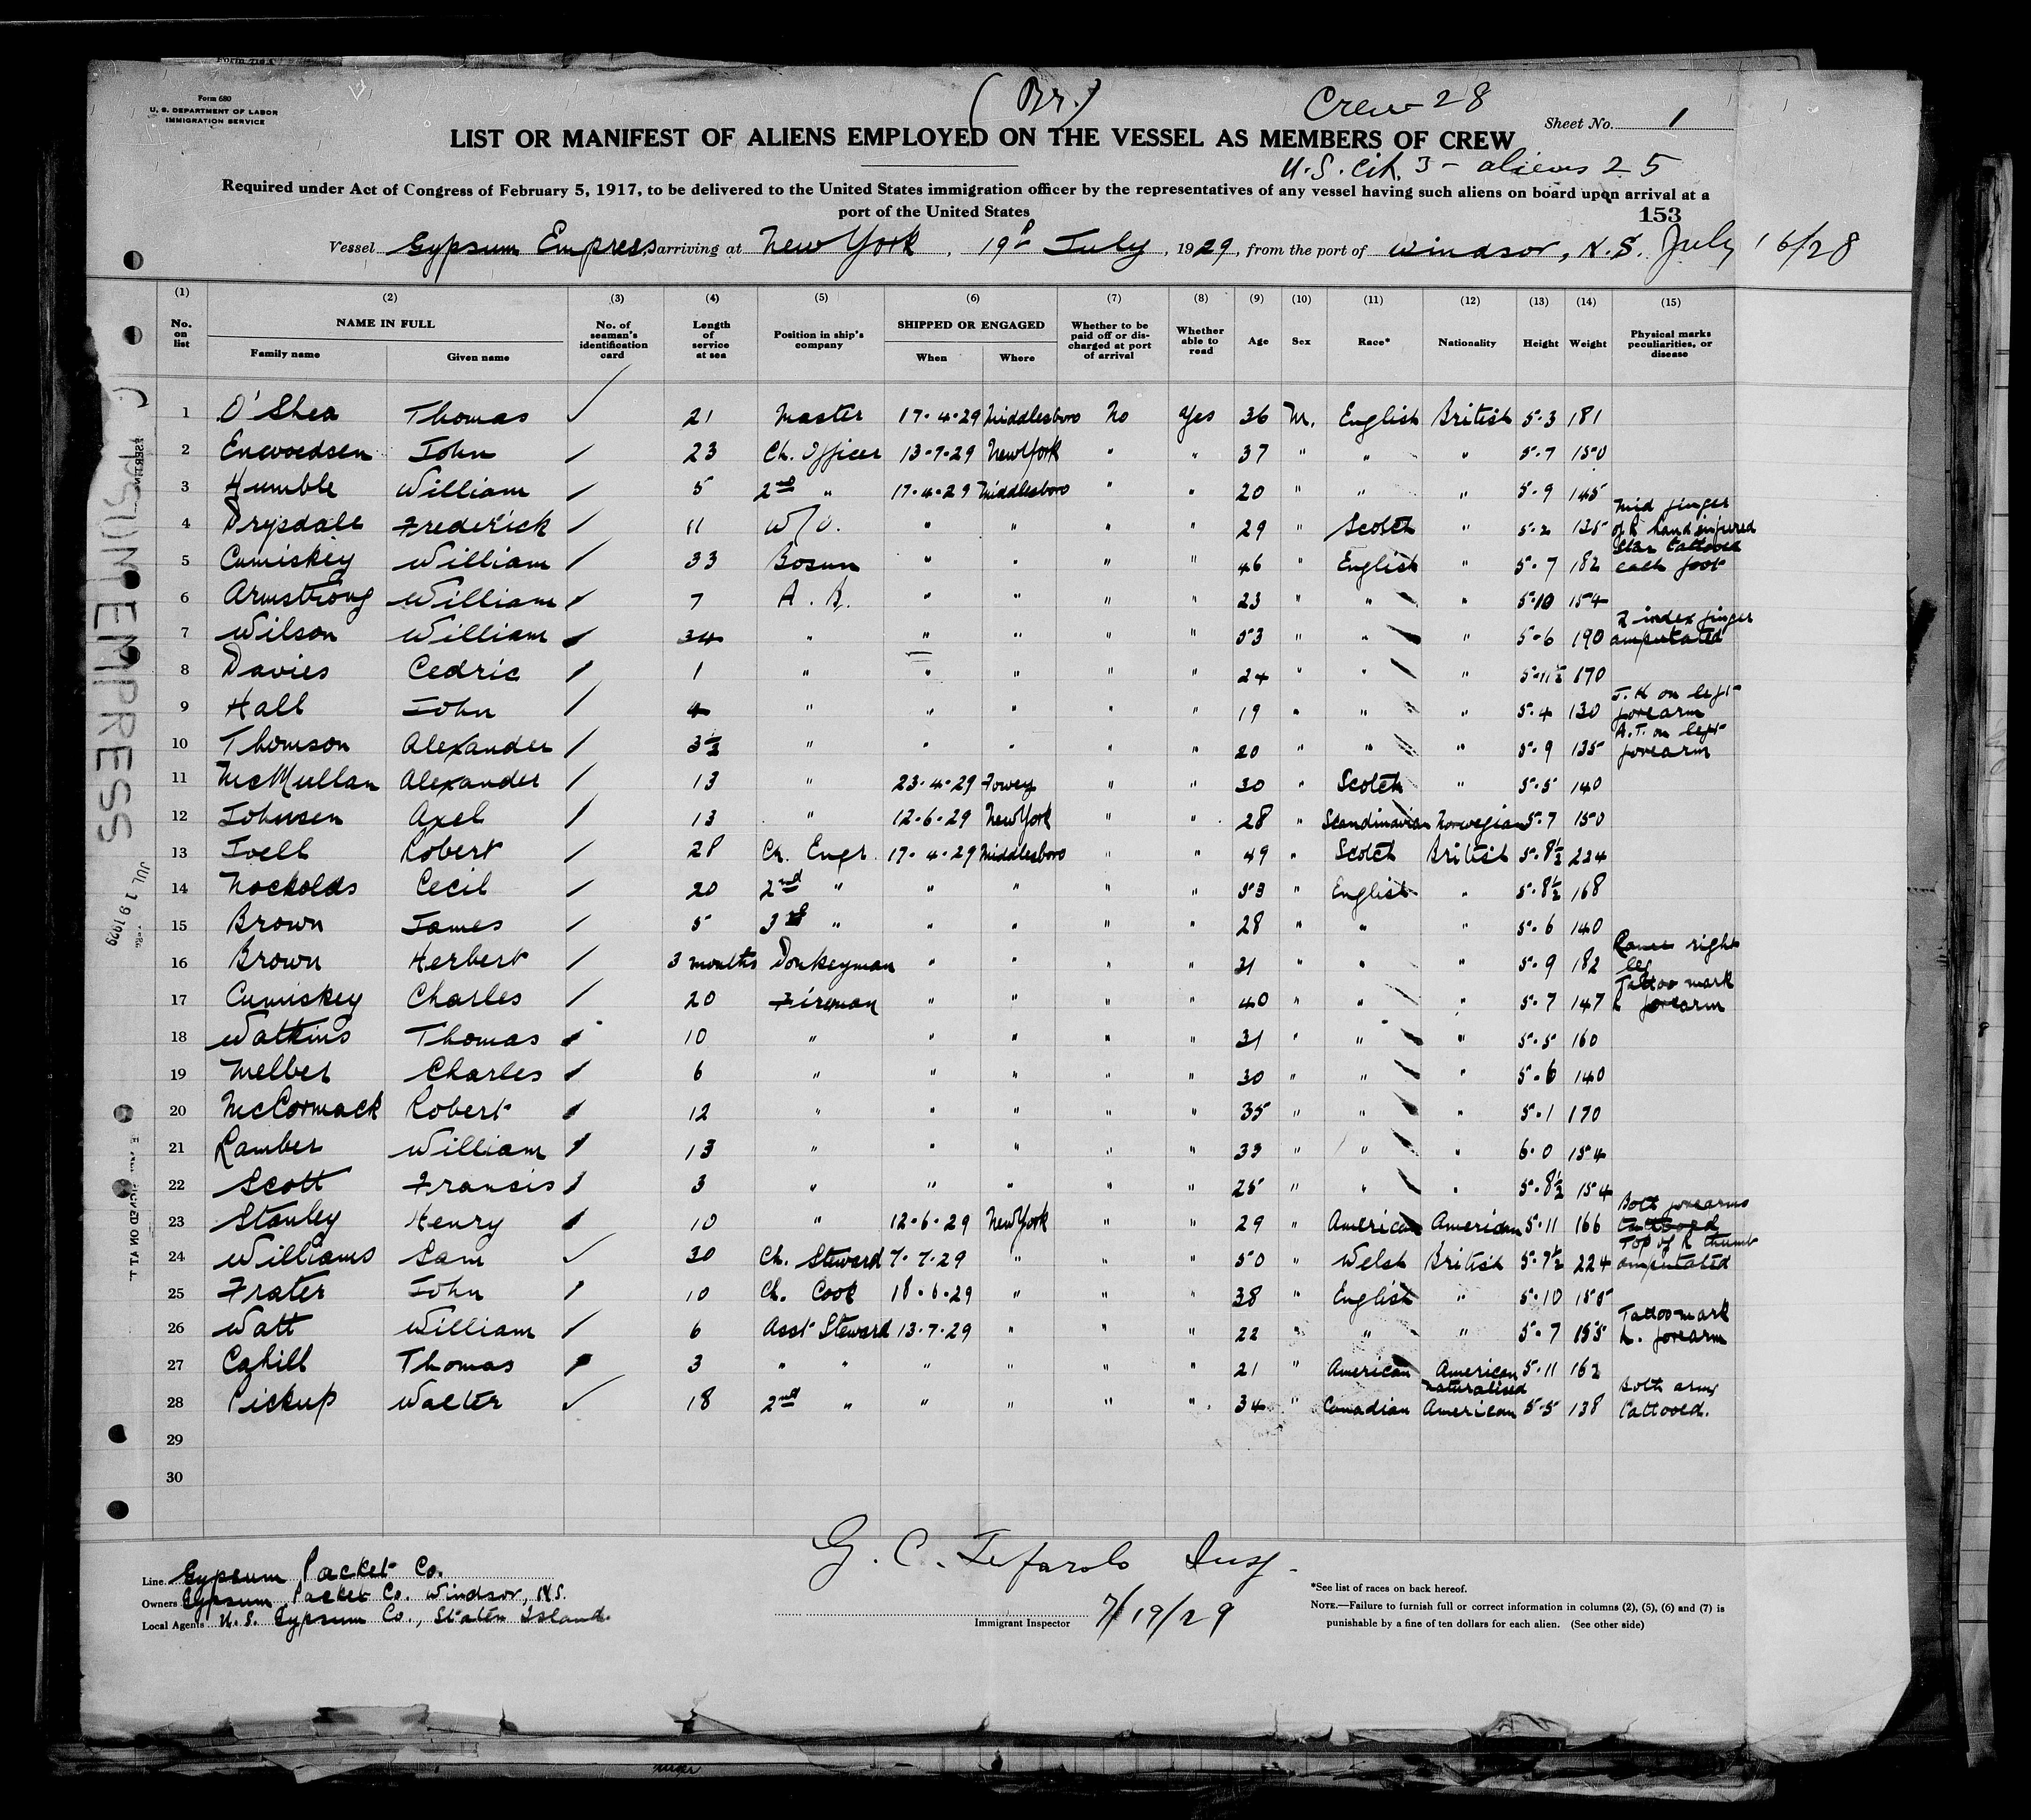 Form 680
U. S. DEPARTMENT OF LABOR
IMMIGRATION SERVICE
(Br.)
Crew 28
Sheet No. 1
LIST OR MANIFEST OF ALIENS EMPLOYED ON THE VESSEL AS MEMBERS OF CREW
U.S. cit. 3 - aliens 25
Required under Act of Congress of February 5, 1917, to be delivered to the United States immigration officer by the representatives of any vessel having such aliens on board upon arrival at a
port of the United States
153
Vessel Gypsum Empress, arriving at New York, 19th July, 1929, from the port of Windsor, N.S. July 16/28
(1) (2) (3) (4) (5) (6) (7) (8) (9) (10) (11) (12) (13) (14) (15)
No. on list NAME IN FULL Family name Given name No. of seaman's identification card Length of service at sea Position in ship's company SHIPPED OR ENGAGED When Where Whether to be paid off or discharged at port of arrival Whether able to read Age Sex Race* Nationality Height Weight Physical marks peculiarities, or disease
1 O'Shea Thomas ✓ 21 Master 17-4-29 Middlesboro No Yes 36 M. English British 5-3 181
2 Enevoedsen John 23 Ch. Officer 13-7-29 New York " " 37 " " " 5-7 150
3 Humble William 5 2nd " 17-4-29 Middlesboro " " 20 " " " 5-9 145
4 Drysdale Frederick 11 W/O. " " " " 29 " Scotch " 5-2 125 Mid finger of R hand injured
5 Cumiskey William 33 Bosun " " " " 46 " English " 5-7 182 Star tattooed each foot
6 Armstrong William 7 A. B. " " " " 23 " " " 5-10 154
7 Wilson William 34 " " " " " 53 " " " 5-6 190 R index finger amputated
8 Davies Cedric 1 " " " " " 24 " " " 5-11½ 170
9 Hall John 4 " " " " " 19 " " " 5-4 130 J.H on left forearm
10 Thomson Alexander 3½ " " " " " 20 " " " 5-9 135 A.T. on left forearm
11 McMullan Alexander 13 " 23-4-29 Fowey " " 30 " Scotch " 5-5 140
12 Johnsen Axel 13 " 12-6-29 New York " " 28 " Scandinavian Norwegian 5-7 150
13 Ivell Robert 28 Ch. Engr. 17-4-29 Middlesboro " " 49 " Scotch British 5-8½ 224
14 Nockolds Cecil 20 2nd " " " " " 53 " English " 5-8½ 168
15 Brown James 5 3rd " " " " " 28 " " " 5-6 140
16 Brown Herbert 3 months Donkeyman " " " " 31 " " " 5-9 182 right leg
17 Cumiskey Charles 20 Fireman " " " " 40 " " " 5-7 147 Tattoo mark L forearm
18 Watkins Thomas 10 " " " " " 31 " " " 5-5 160
19 Melber Charles 6 " " " " " 30 " " " 5-6 140
20 McCormack Robert 12 " " " " " 35 " " " 5-1 170
21 Ramber William 13 " " " " " 33 " " " 6-0 154
22 Scott Francis 3 " " " " " 25 " " " 5-8½ 154
23 Stanley Henry 10 " 12-6-29 New York " " 29 " American American 5-11 166 Both forearms tattooed
24 Williams Sam ✓ 30 Ch. Steward 7-7-29 " " " 50 " Welsh British 5-7½ 224 Top of R thumb amputated
25 Frater John 10 Ch. Cook 18-6-29 " " " 38 " English " 5-10 155
26 Watt William 6 Asst Steward 13-7-29 " " " 22 " " " 5-7 155 Tattoo mark L. forearm
27 Cahill Thomas 3 " " " " " " 21 " American American 5-11 162
28 Pickup Walter ✓ 18 2nd " " " " " 34 " Canadian naturalised American 5-5 138 Both arms tattooed.
29
30
GYPSUM EMPRESS
JUL 19 1929
G. C. Insp.
Line Gypsum Packet Co.
Owners Gypsum Packet Co. Windsor, N.S.
Local Agents U.S. Gypsum Co., Staten Island.
Immigrant Inspector 7/19/29
*See list of races on back hereof.
NOTE.—Failure to furnish full or correct information in columns (2), (5), (6) and (7) is
punishable by a fine of ten dollars for each alien. (See other side)